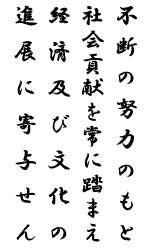 不断の努力のもと
社会貢献を常に踏まえ
経済及び文化の
進展に寄与せん